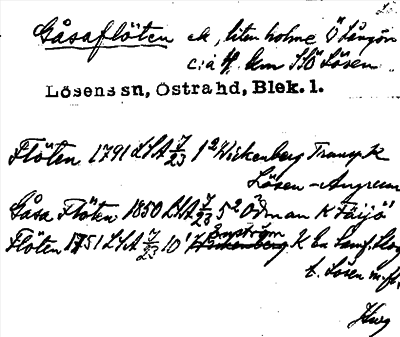 Gåsaflöten ek, liten holme Ö Långön
c:a 4 km SÖ Lösen
Lösens sn, Östra hd, Blek. l.
Flöten 1791 LSA 7/23 1² Wickenberg Transp. K
Lösen - Angrem
Gåsa Flöten 1850 LSA 7/23 5² Ödman K Färjö
Flöten 1751 LSA 7/23 10¹ Enström K
t. Lösen m.fl.